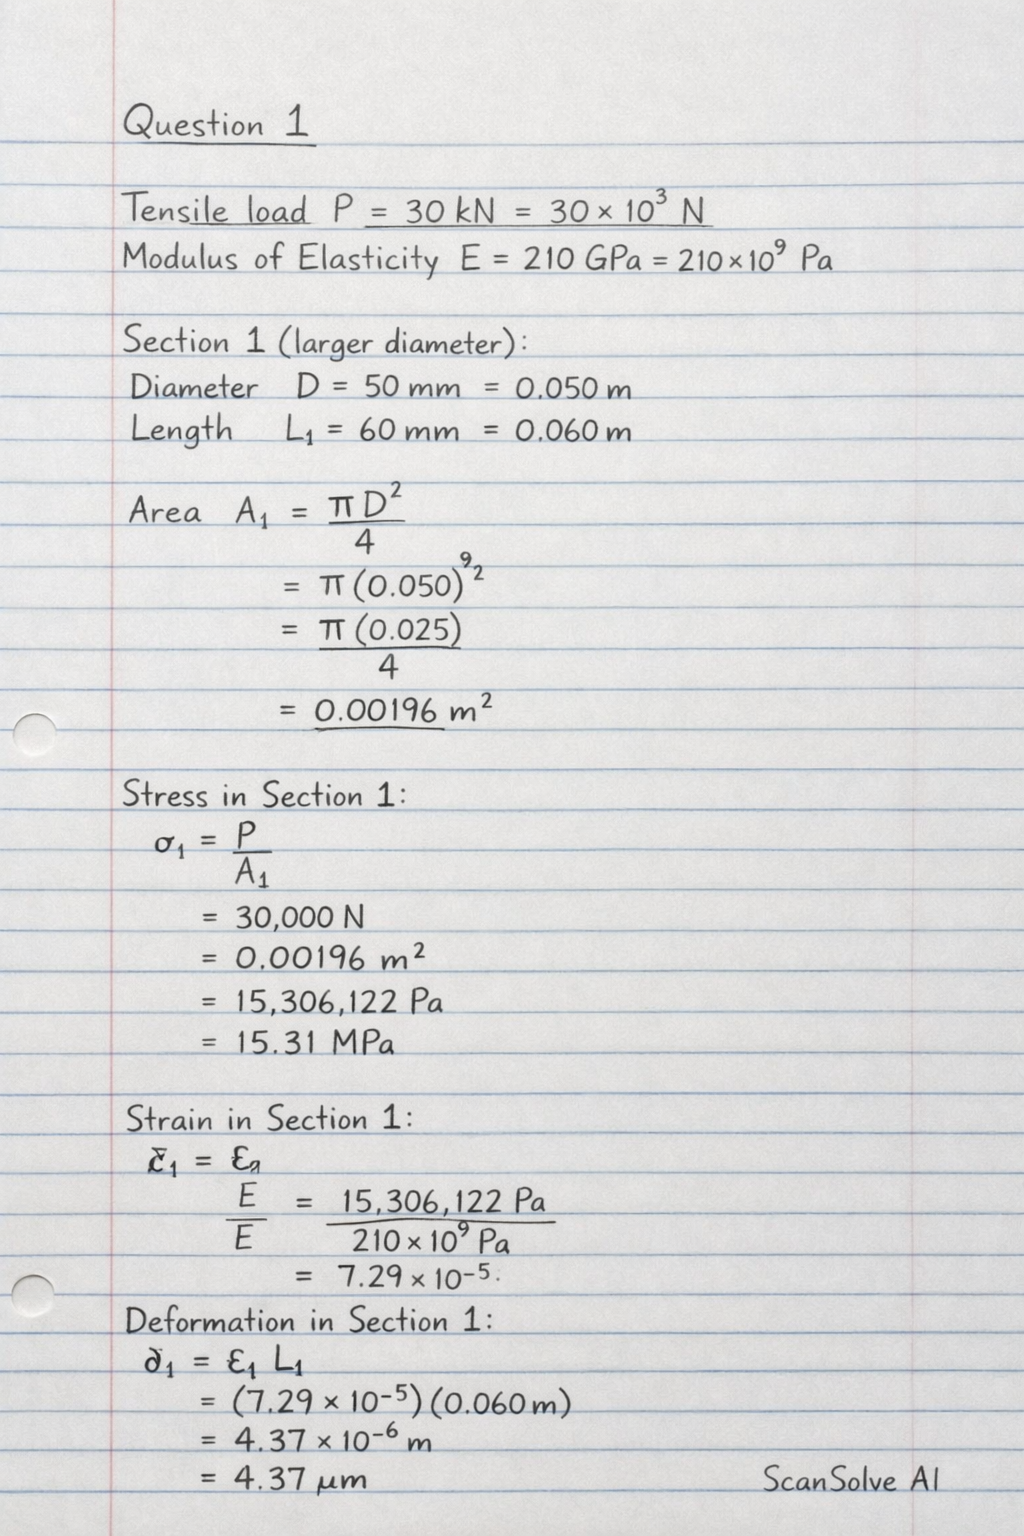 Question 1
Tensile load P = 30 kN = 30 × 10³ N
Modulus of Elasticity E = 210 GPa = 210×10⁹ Pa
Section 1 (larger diameter):
Diameter D = 50 mm = 0.050 m
Length L₁ = 60 mm = 0.060 m
Area A₁ = π D²
4
= π (0.050)⁹²
= π (0.025)
4
= 0.00196 m²
Stress in Section 1:
σ₁ = P
A₁
= 30,000 N
= 0.00196 m²
= 15,306,122 Pa
= 15.31 MPa
Strain in Section 1:
₁ = ε
E = 15,306,122 Pa
E 210 × 10⁹ Pa
= 7.29 × 10⁻⁵.
Deformation in Section 1:
∂₁ = ε₁ L₁
= (7.29 × 10⁻⁵)(0.060 m)
= 4.37 × 10⁻⁶ m
= 4.37 μm
ScanSolve AI